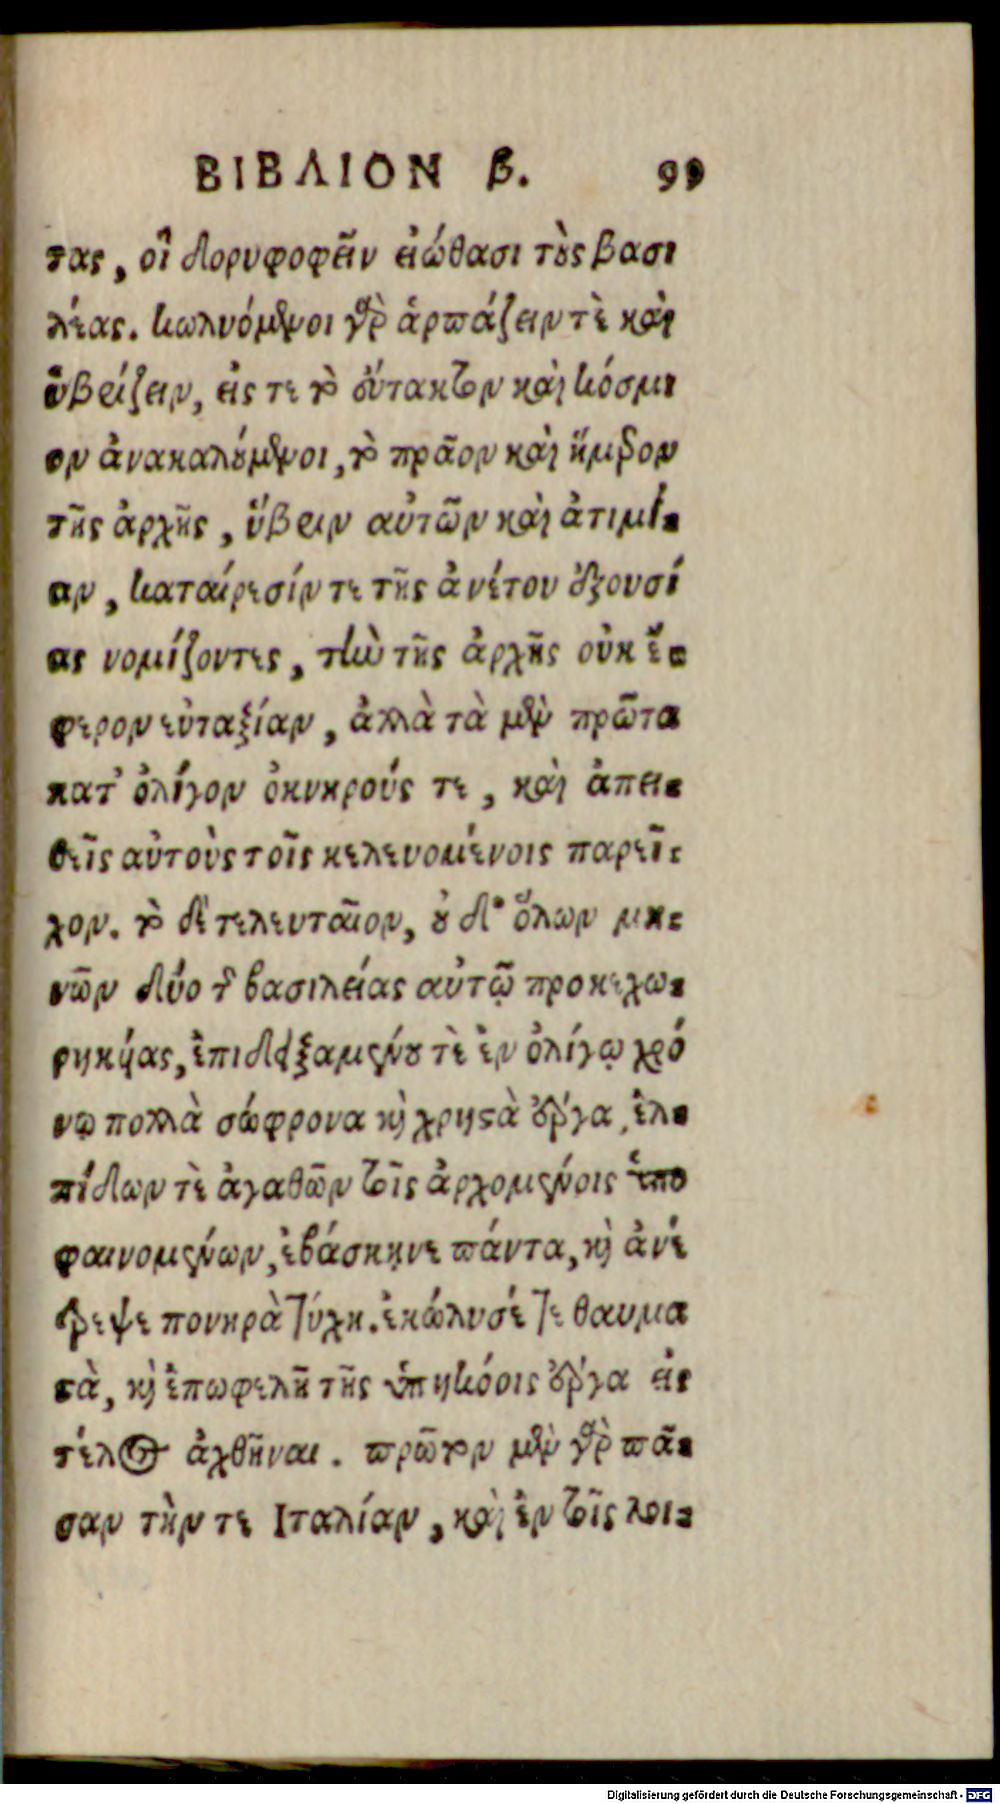 ΒΙΒΛΙΟΝ β. 99
τας, οἳ δορυφοφεῖν εἰώθασι τοὺς βασι
λέας. κωλυόμενοι γὰρ ἁρπάζειν τὲ καὶ
ὑβρίζειν, εἴς τε τὸ εὔτακτον καὶ κόσμι
ον ἀνακαλούμενοι, τὸ πρᾶον καὶ ἥμερον
τῆς ἀρχῆς, ὕβριν αὐτῶν καὶ ἀτιμί-
αν, καταίρεσίν τε τῆς ἀνέτου ἐξουσί
ας νομίζοντες, τὴν τῆς ἀρχῆς οὐκ ἔ-
φερον εὐταξίαν, ἀλλὰ τὰ μὲν πρῶτα
κατ᾽ ὀλίγον ὀκνηρούς τε, καὶ ἀπει-
θεῖς αὐτοὺς τοῖς κελευομένοις παρεῖ-
χον. τὸ δὲ τελευταῖον, οὐ δι᾽ ὅλων μη-
νῶν δύο τῆς βασιλείας αὐτῷ προκεχω-
ρηκυίας, ἐπιδειξαμένου τὲ ἐν ὀλίγῳ χρό
νῳ πολλὰ σώφρονα καὶ χρηστὰ ἔργα, ἐλ-
πίδων τὲ ἀγαθῶν τοῖς ἀρχομένοις ὑπο
φαινομένων, ἐβάσκῃνε πάντα, καὶ ἀνέ
τρεψε πονηρὰ τύχη. ἐκώλυσέ τε θαυμα
στὰ, καὶ ἐπωφελῆ τῆς ὑπηκόοις ἔργα εἰς
τέλος ἀχθῆναι. πρῶτον μὲν γὰρ πᾶ-
σαν τήν τε Ιταλίαν, καὶ ἐν τοῖς λοι-
Digitalisierung gefördert durch die Deutsche Forschungsgemeinschaft - DFG